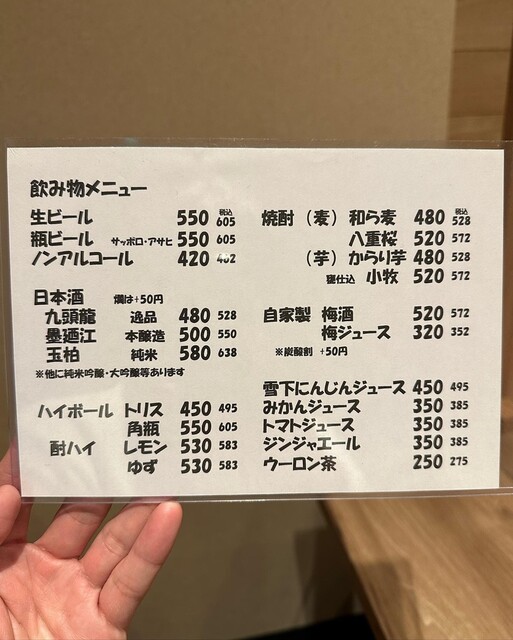 飲み物メニュー
生ビール 550 税込 605
瓶ビール サッポロ・アサヒ 550 605
ノンアルコール 420 462
日本酒 燗は+50円
九頭龍 逸品 480 528
墨廼江 本醸造 500 550
玉柏 純米 580 638
※他に純米吟醸・大吟醸等あります
ハイボール トリス 450 495
角瓶 550 605
酎ハイ レモン 530 583
ゆず 530 583
焼酎 (麦) 和ら麦 480 税込 528
八重桜 520 572
(芋) からり芋 480 528
甕仕込 小牧 520 572
自家製 梅酒 520 572
梅ジュース 320 352
※炭酸割 +50円
雪下にんじんジュース 450 495
みかんジュース 350 385
トマトジュース 350 385
ジンジャエール 350 385
ウーロン茶 250 275